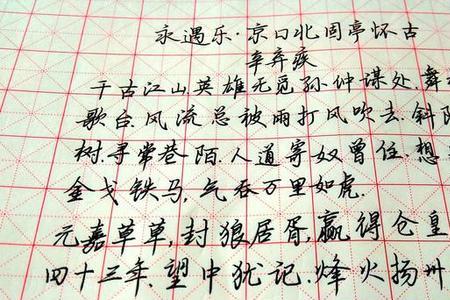 永遇乐·京口北固亭怀古
辛弃疾
千古江山,英雄无觅孙仲谋处.舞
歌台.风流总被雨打风吹去.斜阳
树.寻常巷陌.人道寄奴曾住.想
金戈铁马,气吞万里如虎.
元嘉草草,封狼居胥,赢得仓皇
四十三年.望中犹记.烽火扬州